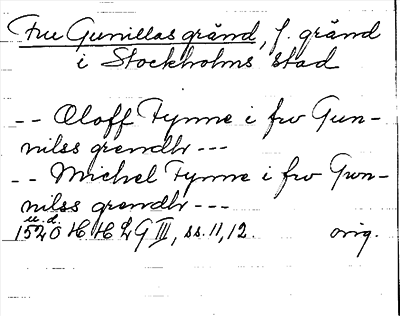 Fru Gunillas gränd, f. gränd
i Stockholms stad
-- Oloff Tynne i frv Gun-
nilss grendh ---
-- Michel Tynne i frv Gvn-
nilss grendh ---
u. d.
1520 H. H L G III, ss. 11, 12. orig.